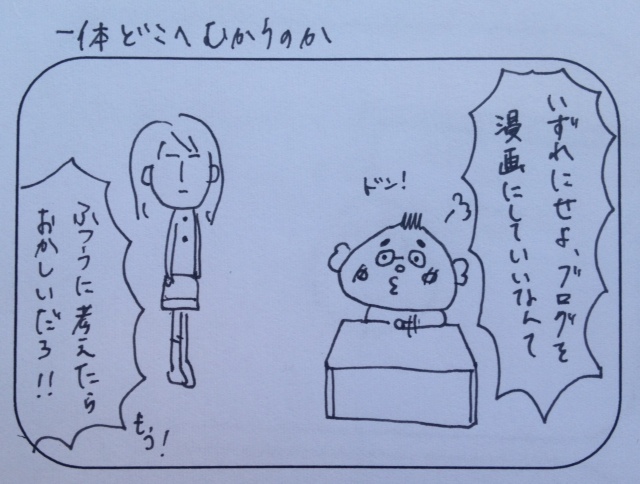 一体どこへむかうのか
いずれにせよ、ブログを
漫画にしていいなんて
ドン!
ふつうに考えたら
おかしいだろ!!
もう!